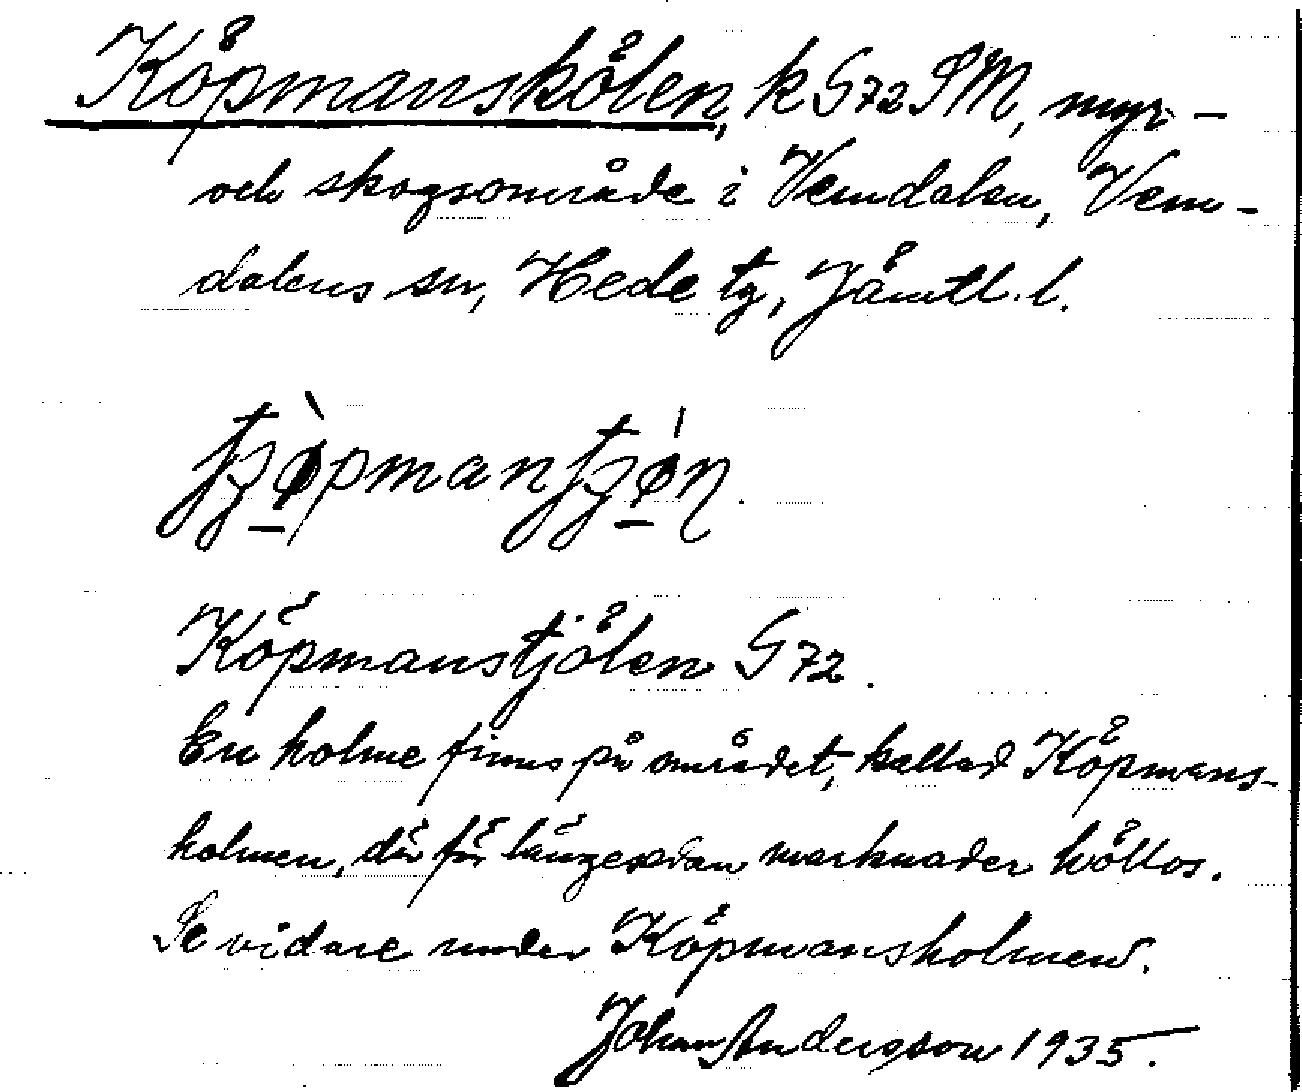 Köpmanskölen, k G72 SM, myr-
och skogsområde i Vemdalen, Vem-
dalens sn, Hede tg, Jämtl. l.
Köpmanstjölen G72.
En holme finns på området, kallad Köpmans-
holmen, där för längesedan marknader höllos.
Se vidare under Köpmansholmen.
Johan Andersson 1935.